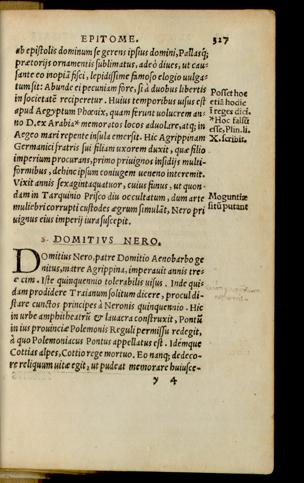 EPITOME. 327
ab epistolis dominum se gerens ipsius domini, Pallasq;
prætorijs ornamentis sublimatus, adeò diues, ut cau-
sante eo inopiã fisci, lepidissime famoso elogio uulga-
tum sit: Abunde ei pecuniam fore, si à duobus libertis
in societatẽ reciperetur. Huius temporibus uisus est
apud Aegyptum Phœnix, quam ferunt uolucrem an-
no D. ex Arabia* memoratos locos aduolare, atq; in
Aegeo mari repente insula emersit. Hic Agrippinam
Germanici fratris sui filiam uxorem duxit, quæ filio
imperium procurans, primo priuignos insidijs multi-
formibus, dehinc ipsum coniugem ueneno interemit.
Vixit annis sexagintaquatuor, cuius funus, ut quon-
dam in Tarquinio Prisco diu occultatum, dum arte
muliebri corrupti custodes ægrum simulãt, Nero pri
uignus eius imperij iura suscepit.
Posset hoc
etiã hodie
ĩ reges dici.
*Hoc falsũ
esse, Plin. li.
X. scribit.
Moguntiæ
sitũ putant
DOMITIVS NERO.
Domitius Nero, patre Domitio Aenobarbo ge
nitus, matre Agrippina, imperauit annis tre-
cim. Iste quinquennio tolerabilis uisus. Inde qui-
dam prodidere Traianum solitum dicere, procul di-
stare cunctos principes à Neronis quinquennio. Hic
in urbe amphitheatrũ & lauacra construxit, Pontũ
in ius prouinciæ Polemonis Reguli permissu redegit,
à quo Polemoniacus Pontus appellatus est. Idemque
Cottias alpes, Cottio rege mortuo. Eo nanq; dedeco-
re reliquum uitæ egit, ut pudeat memorare huiusce-
y 4